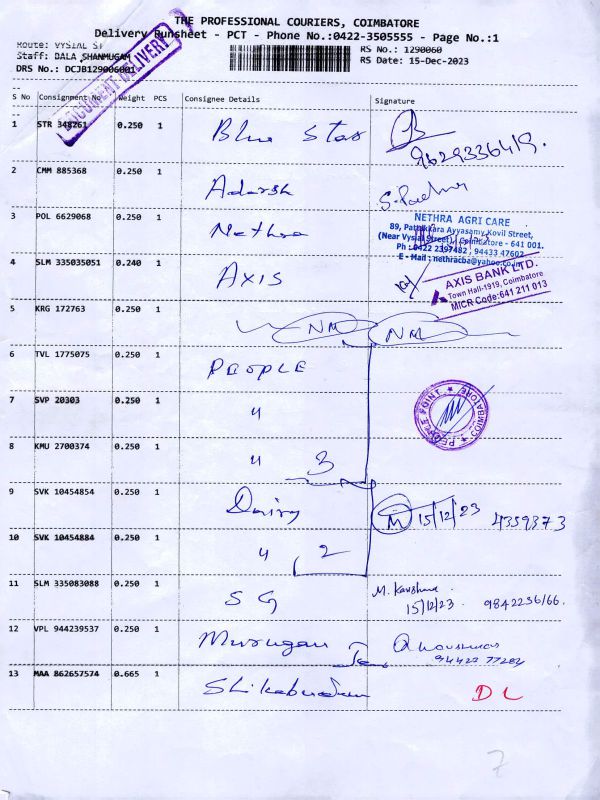 THE PROFESSIONAL COURIERS, COIMBATORE
Delivery Runsheet - PCT - Phone No.:0422-3505555 - Page No.:1
Route: VYSIAL ST
RS No.: 1290060
Staff: DALA SHANMUGAM
RS Date: 15-Dec-2023
DRS No.: DCJB129006001
DOCUMENT DELIVERY
S No Consignment No Weight PCS Consignee Details Signature
1 STR 348261 0.250 1 Blue Star
9629336419.
2 CMM 885368 0.250 1 Adarsh
3 POL 6629068 0.250 1 Nethra
NETHRA AGRI CARE
89, Pattikkara Ayyasamy Kovil Street,
(Near Vysial Street), Coimbatore - 641 001.
Ph : 0422 2397482, 94433 47602
E - Mail : nethracba@yahoo.co.in
4 SLM 335035051 0.240 1 AXIS
AXIS BANK LTD.
Town Hall-1919, Coimbatore
MICR Code:641 211 013
5 KRG 172763 0.250 1 NM NM
6 TVL 1775075 0.250 1 PEOPLE
7 SVP 20303 0.250 1 "
PEOPLE POINT ★ COIMBATORE ★
8 KMU 2700374 0.250 1 " 3
9 SVK 10454854 0.250 1 Dairy
15/12/23 4359373
10 SVK 10454884 0.250 1 " 2
11 SLM 335083088 0.250 1 SG
M. Kavshna
15/12/23. 9842256166.
12 VPL 944239537 0.250 1 Murugan
94422 77282
13 MAA 862657574 0.665 1
DL
7